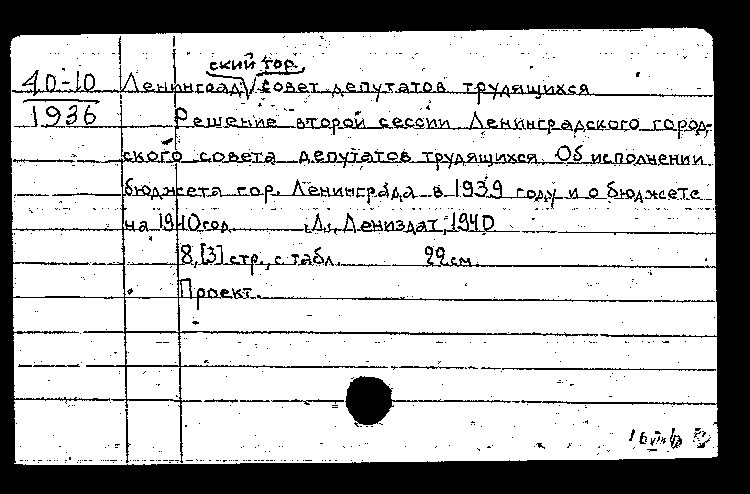 ский гор.
40-10 Ленинград совет депутатов трудящихся
1936 Решение второй сессии Ленинградского город-
ского совета депутатов трудящихся. Об исполнении
бюджета гор. Ленинграда в 1939 году и о бюджете
на 1940 год. Л., Лениздат, 1940
8, [3] стр., с табл. 22 см.
Проект.